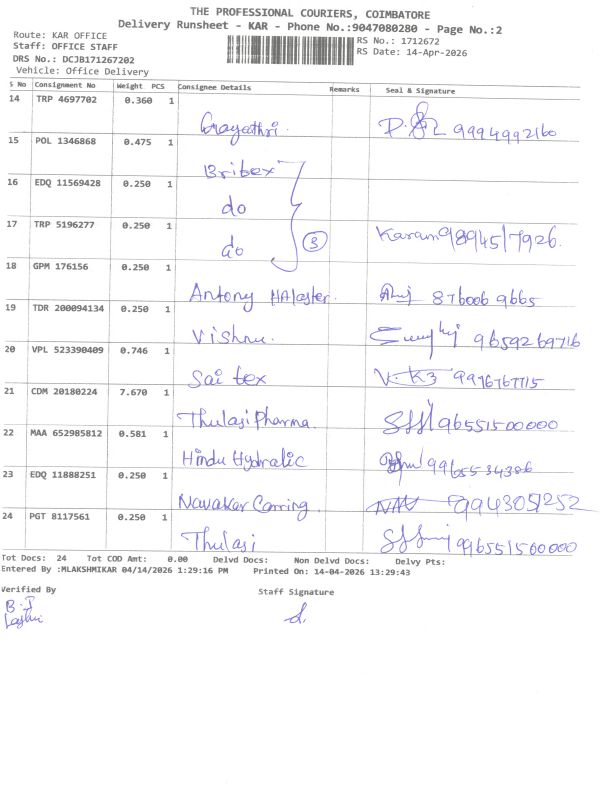 THE PROFESSIONAL COURIERS, COIMBATORE
Delivery Runsheet - KAR - Phone No.:9047080280 - Page No.:2
Route: KAR OFFICE RS No.: 1712672
Staff: OFFICE STAFF RS Date: 14-Apr-2026
DRS No.: DCJB171267202
Vehicle: Office Delivery
S No Consignment No Weight PCS Consignee Details Remarks Seal & Signature
14 TRP 4697702 0.360 1
Gayathri. 9994992160
15 POL 1346868 0.475 1
Britex
16 EDQ 11569428 0.250 1
do
17 TRP 5196277 0.250 1
do 3 Karan 9894517926.
18 GPM 176156 0.250 1
Antony 876006 9665
19 TDR 200094134 0.250 1
Vishnu. 9659269716
20 VPL 523390409 0.746 1
Sai tex 9976767715
21 CDM 20180224 7.670 1
Thulasi Pharma. 96551500000
22 MAA 652985812 0.581 1
Hindu Hydralic 9965534306
23 EDQ 11888251 0.250 1
Navakar 9943051252
24 PGT 8117561 0.250 1
Thulasi 996551500000
Tot Docs: 24 Tot COD Amt: 0.00 Delvd Docs: Non Delvd Docs: Delvy Pts:
Entered By :MLAKSHMIKAR 04/14/2026 1:29:16 PM Printed On: 14-04-2026 13:29:43
Verified By Staff Signature